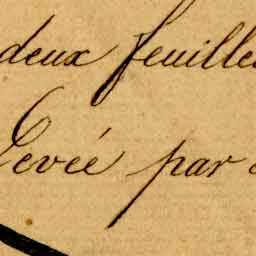 deux feuilles
Levée par